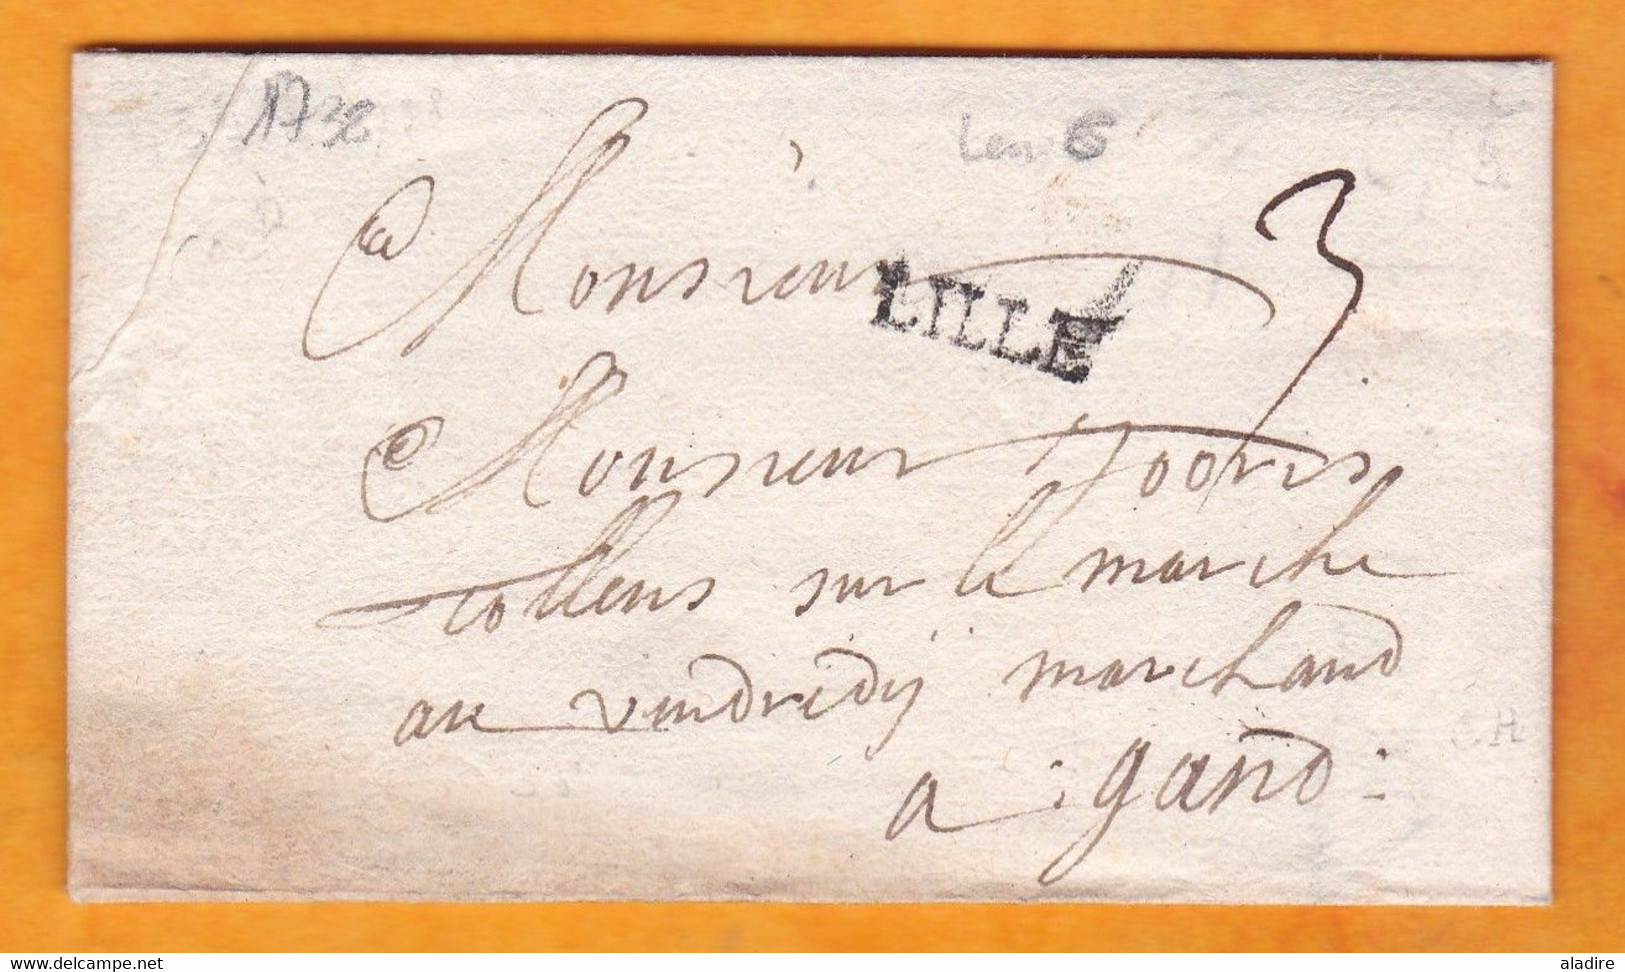 1738
Len 6
3
Monsieur
LILLE
Monsieur Jooris
collens sur le marche
au vendredij marchand
a : gand :
C.H
delcampe.net
aladire